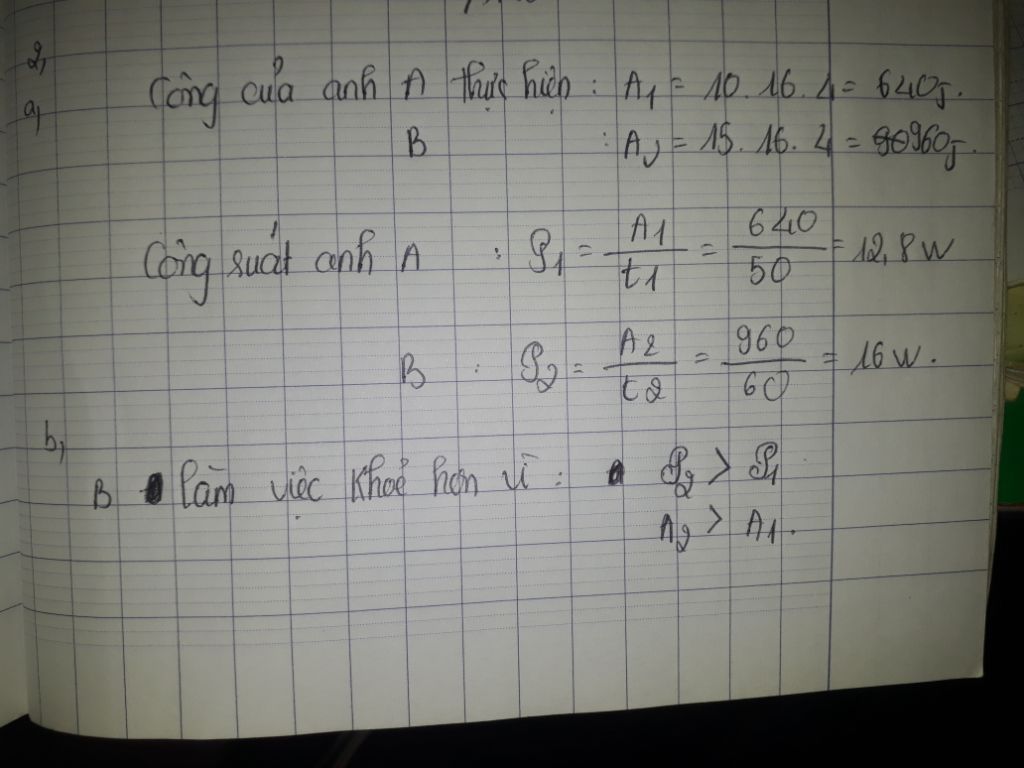 2,
a, Công của anh A thực hiện : A1 = 10.16.4 = 640J.
B : A2 = 15.16.4 = 960J.
Công suất anh A : P1 = A1/t1 = 640/50 = 12,8W
B : P2 = A2/t2 = 960/60 = 16W.
b,
B làm việc khoẻ hơn vì : P2 > P1
A2 > A1.